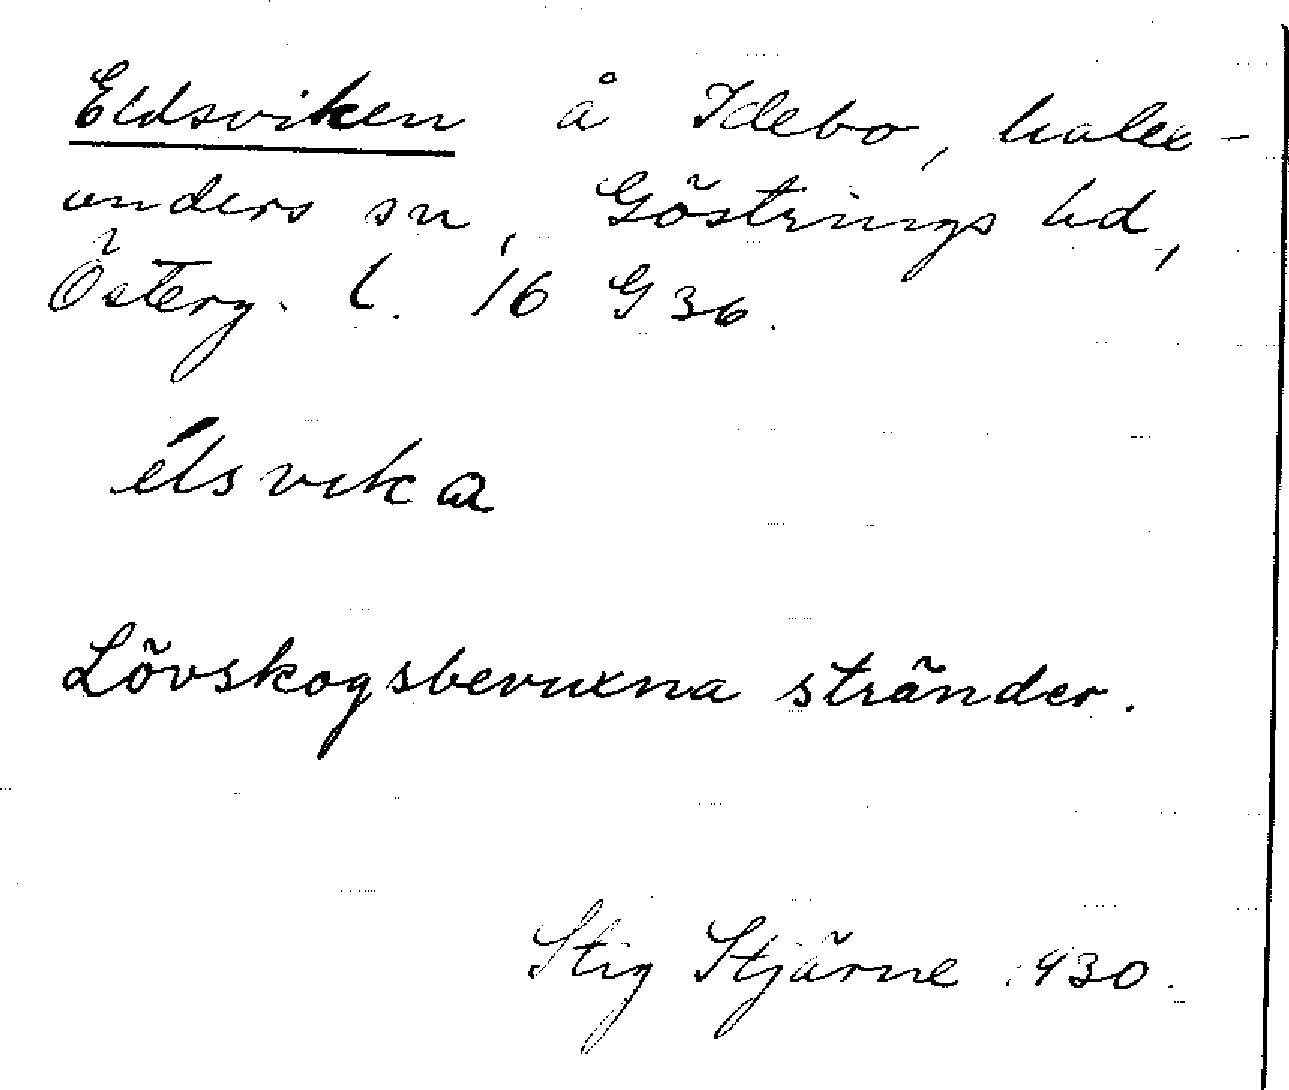 Eldsviken å Idebo, halle-
anders sn, Göstrings hd,
Österg. l. 16 G 36.
élsvika
Lövskogsbevuxna stränder.
Stig Stjärne 1930.